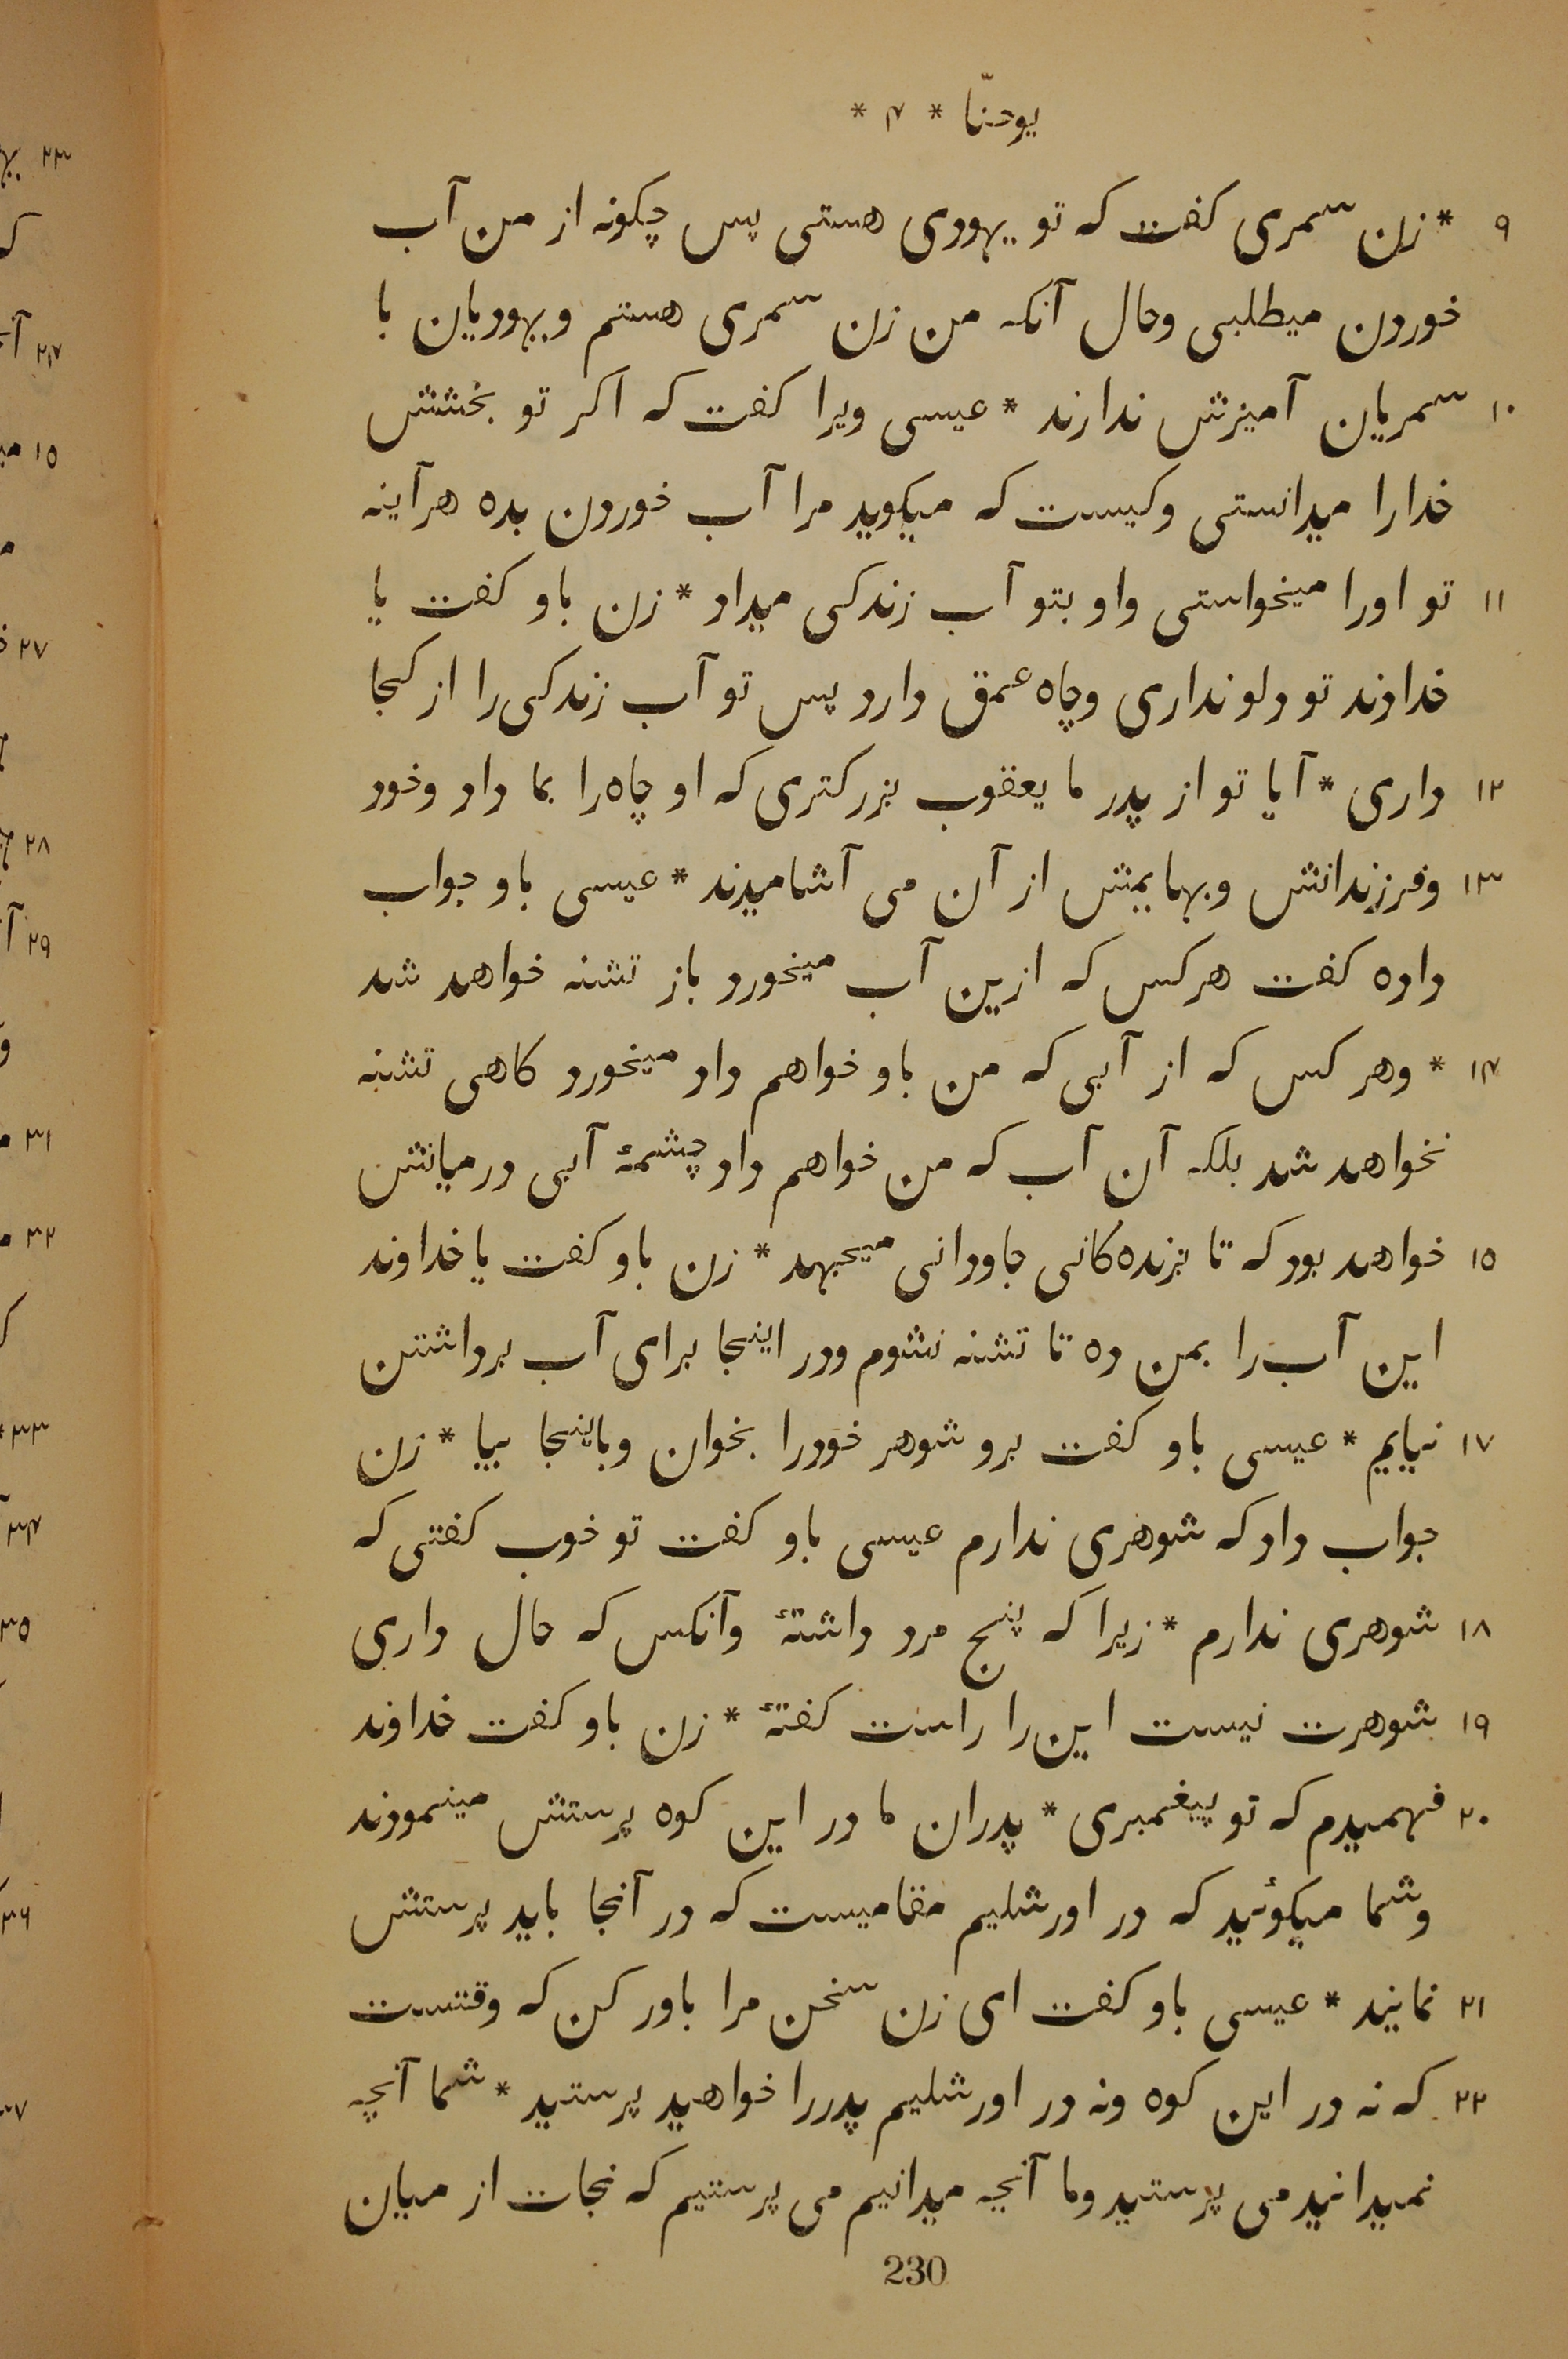 یوحنّا * ۴ *
۹ * زن سمری کفت که تو یهودی هستی پس چکونه از من آب
خوردن میطلبی وحال آنکه من زن سمری هستم ویهودیان با
۱۰ سمریان آمیزش ندارند * عیسی ویرا کفت که اکر تو بخشش
خدارا میدانستی وکیست که میکوید مرا آب خوردن بده هرآینه
۱۱ تو اورا میخواستی واو بتو آب زندکی میداد * زن باو کفت یا
خداوند تو دلو نداری وچاه عمق دارد پس تو آب زندکی را از کجا
۱۲ داری * آیا تو از پدر ما یعقوب بزرکتری که او چاه را بما داد وخود
۱۳ وفرزندانش وبهایمش از آن می آشامیدند * عیسی باو جواب
داده کفت هرکس که ازین آب میخورد باز تشنه خواهد شد
۱۴ * وهر کس که از آبی که من باو خواهم داد میخورد کاهی تشنه
نخواهد شد بلکه آن آب که من خواهم داد چشمهٔ آبی درمیانش
۱۵ خواهد بود که تا بزنده کانی جاودانی میجهد * زن باو کفت یا خداوند
این آب را بمن ده تا تشنه نشوم ودر اینجا برای آب برداشتن
۱۷ نیایم * عیسی باو کفت برو شوهر خودرا بخوان وباینجا بیا * زن
جواب داد که شوهری ندارم عیسی باو کفت تو خوب کفتی که
۱۸ شوهری ندارم * زیرا که پنج مرد داشتهٔ وآنکس که حال داری
۱۹ شوهرت نیست این را راست کفتهٔ * زن باو کفت خداوند
۲۰ فهمیدم که تو پیغمبری * پدران ما در این کوه پرستش مینمودند
وشما میکوئید که در اورشلیم مقامیست که در آنجا باید پرستش
۲۱ نمایند * عیسی باو کفت ای زن سخن مرا باور کن که وقتست
۲۲ که نه در این کوه ونه در اورشلیم پدررا خواهید پرستید * شما آنچه
نمیدانید می پرستید وما آنچه میدانیم می پرستیم که نجات از میان
230